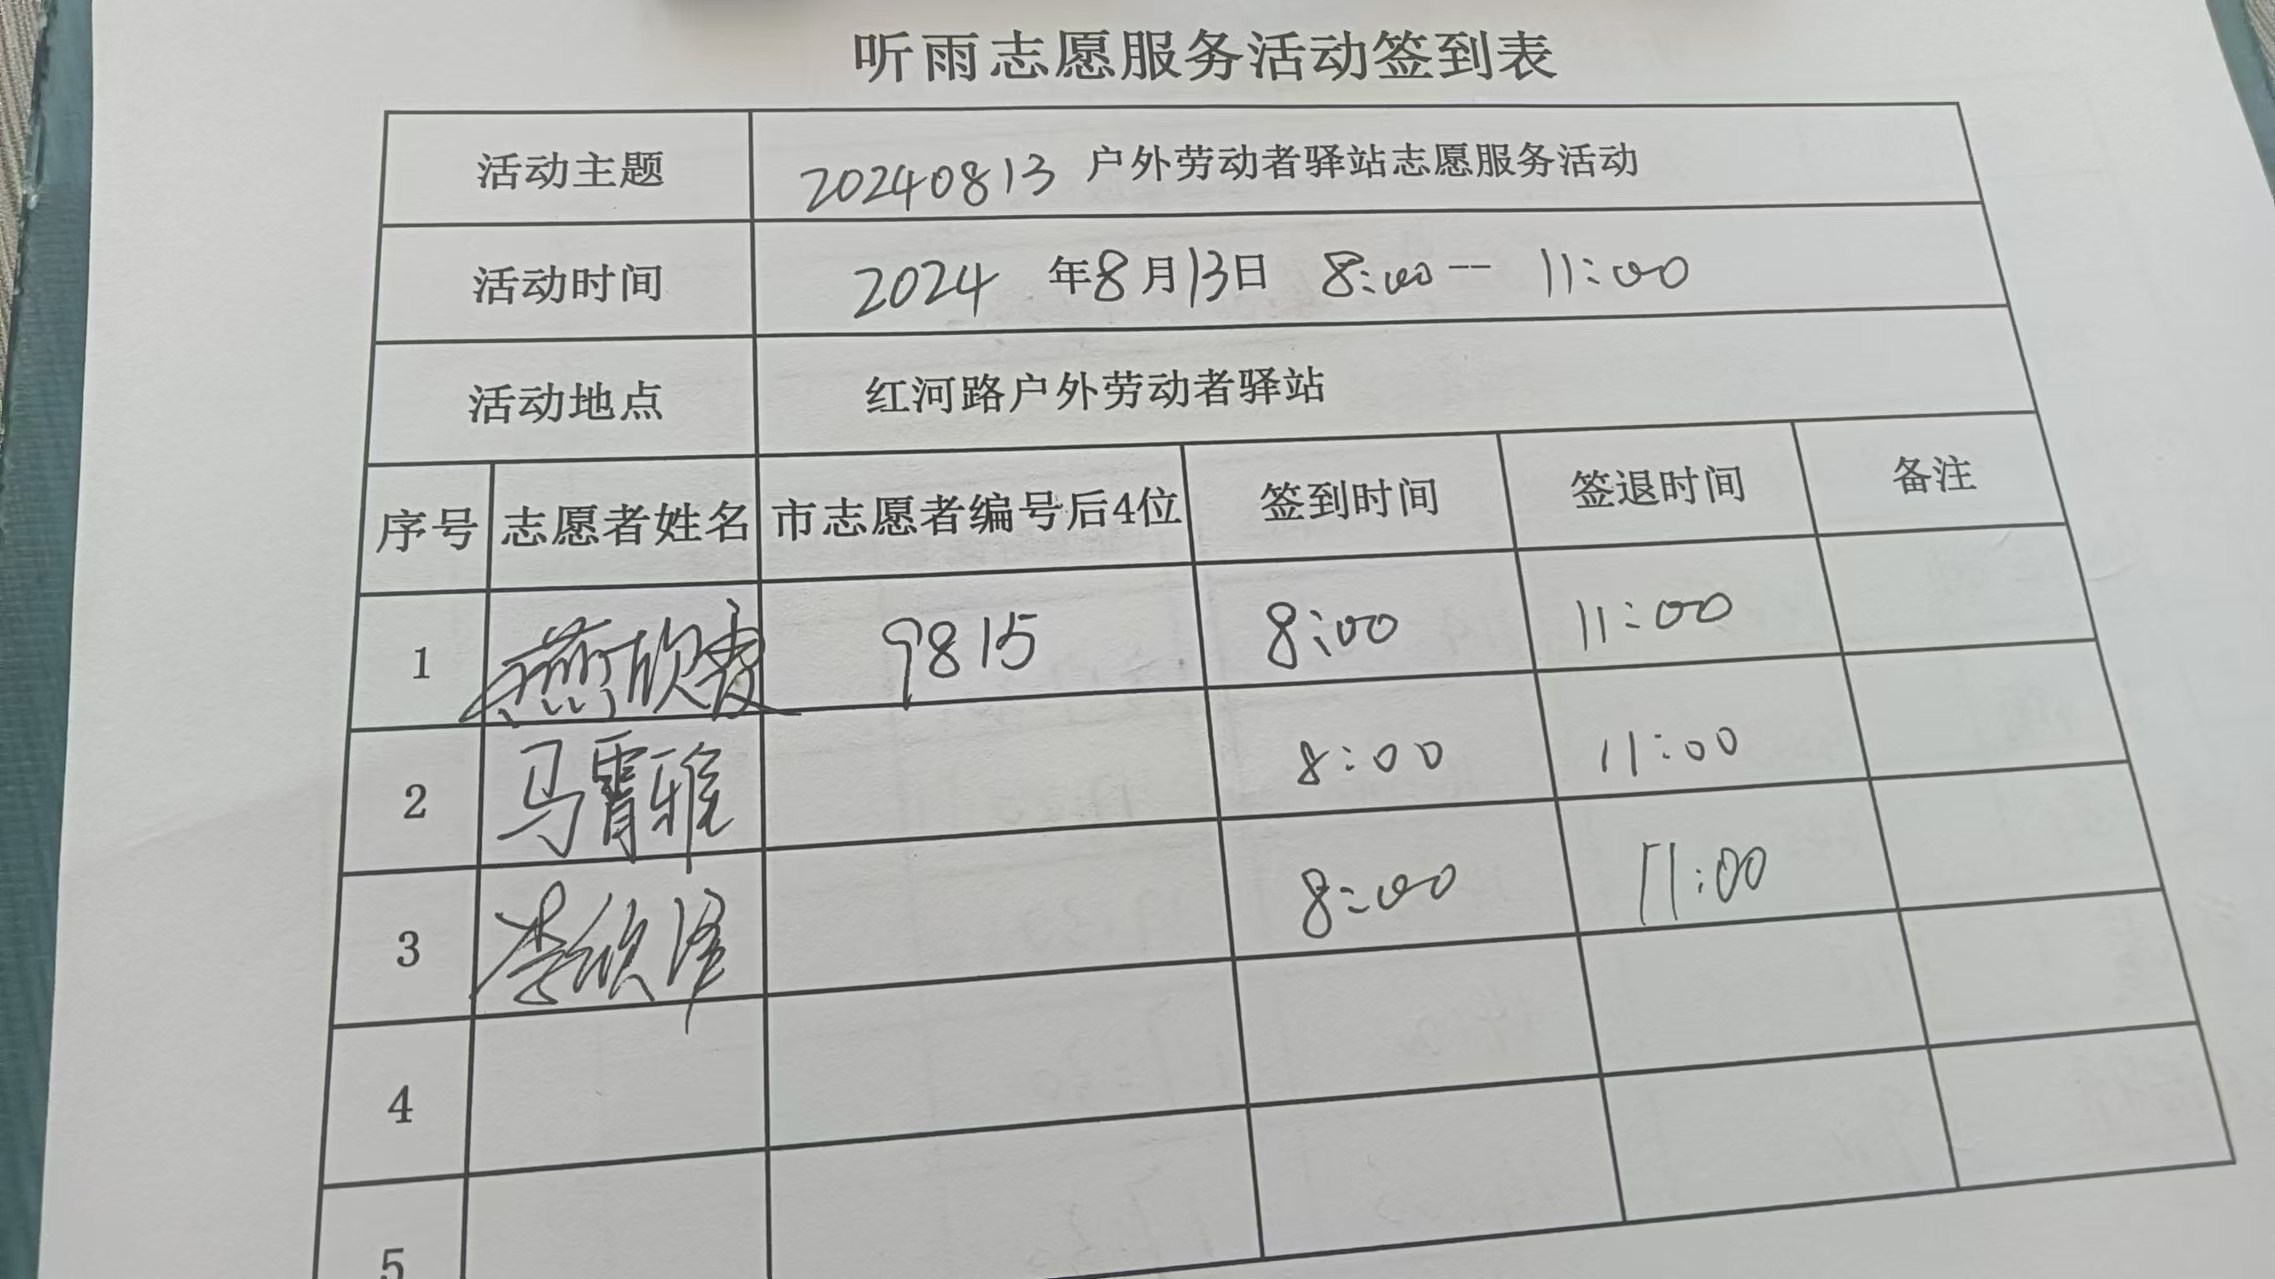 听雨志愿服务活动签到表
活动主题 20240813 户外劳动者驿站志愿服务活动
活动时间 2024 年8月13日 8:00-- 11:00
活动地点 红河路户外劳动者驿站
序号 志愿者姓名 市志愿者编号后4位 签到时间 签退时间 备注
1 燕欣 9815 8:00 11:00
2 马霄雅 8:00 11:00
3 李欣泽 8:00 11:00
4
5